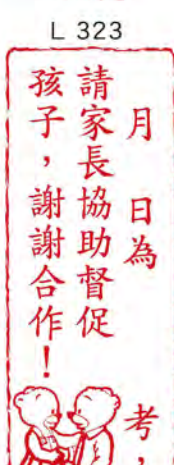 L 323
月　日為　　　　考，
請家長協助督促
孩子，謝謝合作！